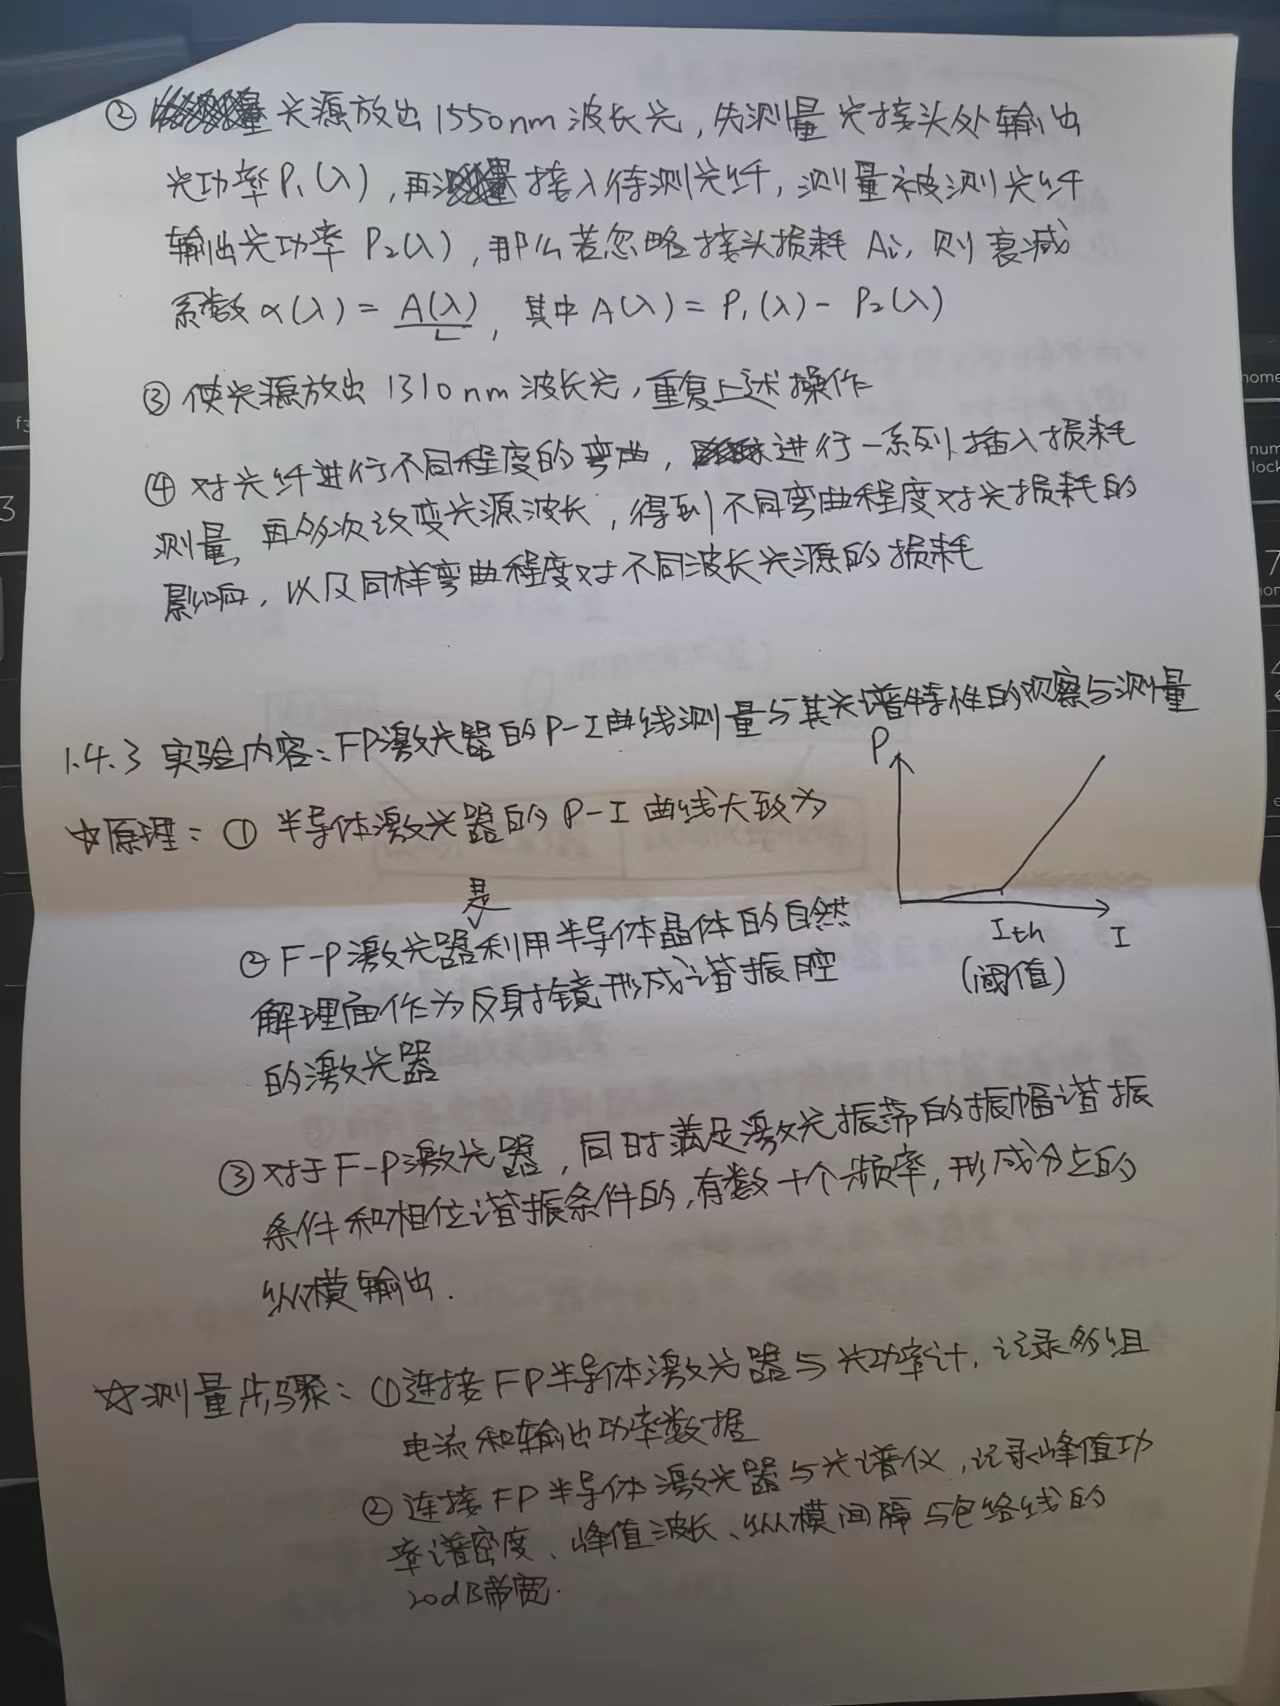 ② 光源放出1550nm波长光，先测量光接头处输出
光功率P₁(λ)，再接入待测光纤，测量被测光纤
输出光功率P₂(λ)，那么若忽略接头损耗Ai，则衰减
系数α(λ) = A(λ)/L，其中A(λ) = P₁(λ) - P₂(λ)
③ 使光源放出1310nm波长光，重复上述操作
④ 对光纤进行不同程度的弯曲，进行一系列插入损耗
测量，再多次改变光源波长，得到不同弯曲程度对光损耗的
影响，以及同样弯曲程度对不同波长光源的损耗
1.4.3 实验内容：FP激光器的P-I曲线测量与其光谱特性的观察与测量
☆原理：① 半导体激光器的P-I曲线大致为
P
Ith
I
(阈值)
② F-P激光器是利用半导体晶体的自然
解理面作为反射镜形成谐振腔
的激光器
③ 对于F-P激光器，同时满足激光振荡的振幅谐振
条件和相位谐振条件的，有数十个频率，形成分立的
纵模输出.
☆测量步骤：① 连接FP半导体激光器与光功率计，记录多组
电流和输出功率数据
② 连接FP半导体激光器与光谱仪，记录峰值功
率谱密度、峰值波长、纵模间隔与包络线的
20dB带宽.